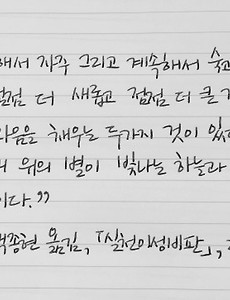 해서 자주 그리고 계속해서 숙고
점점 더 새롭고 점점 더 큰
마음을 채우는 두가지 것이 있
위의 별이 빛나는 하늘과
이다.”
백종현 옮김, 「실천이성비판」,